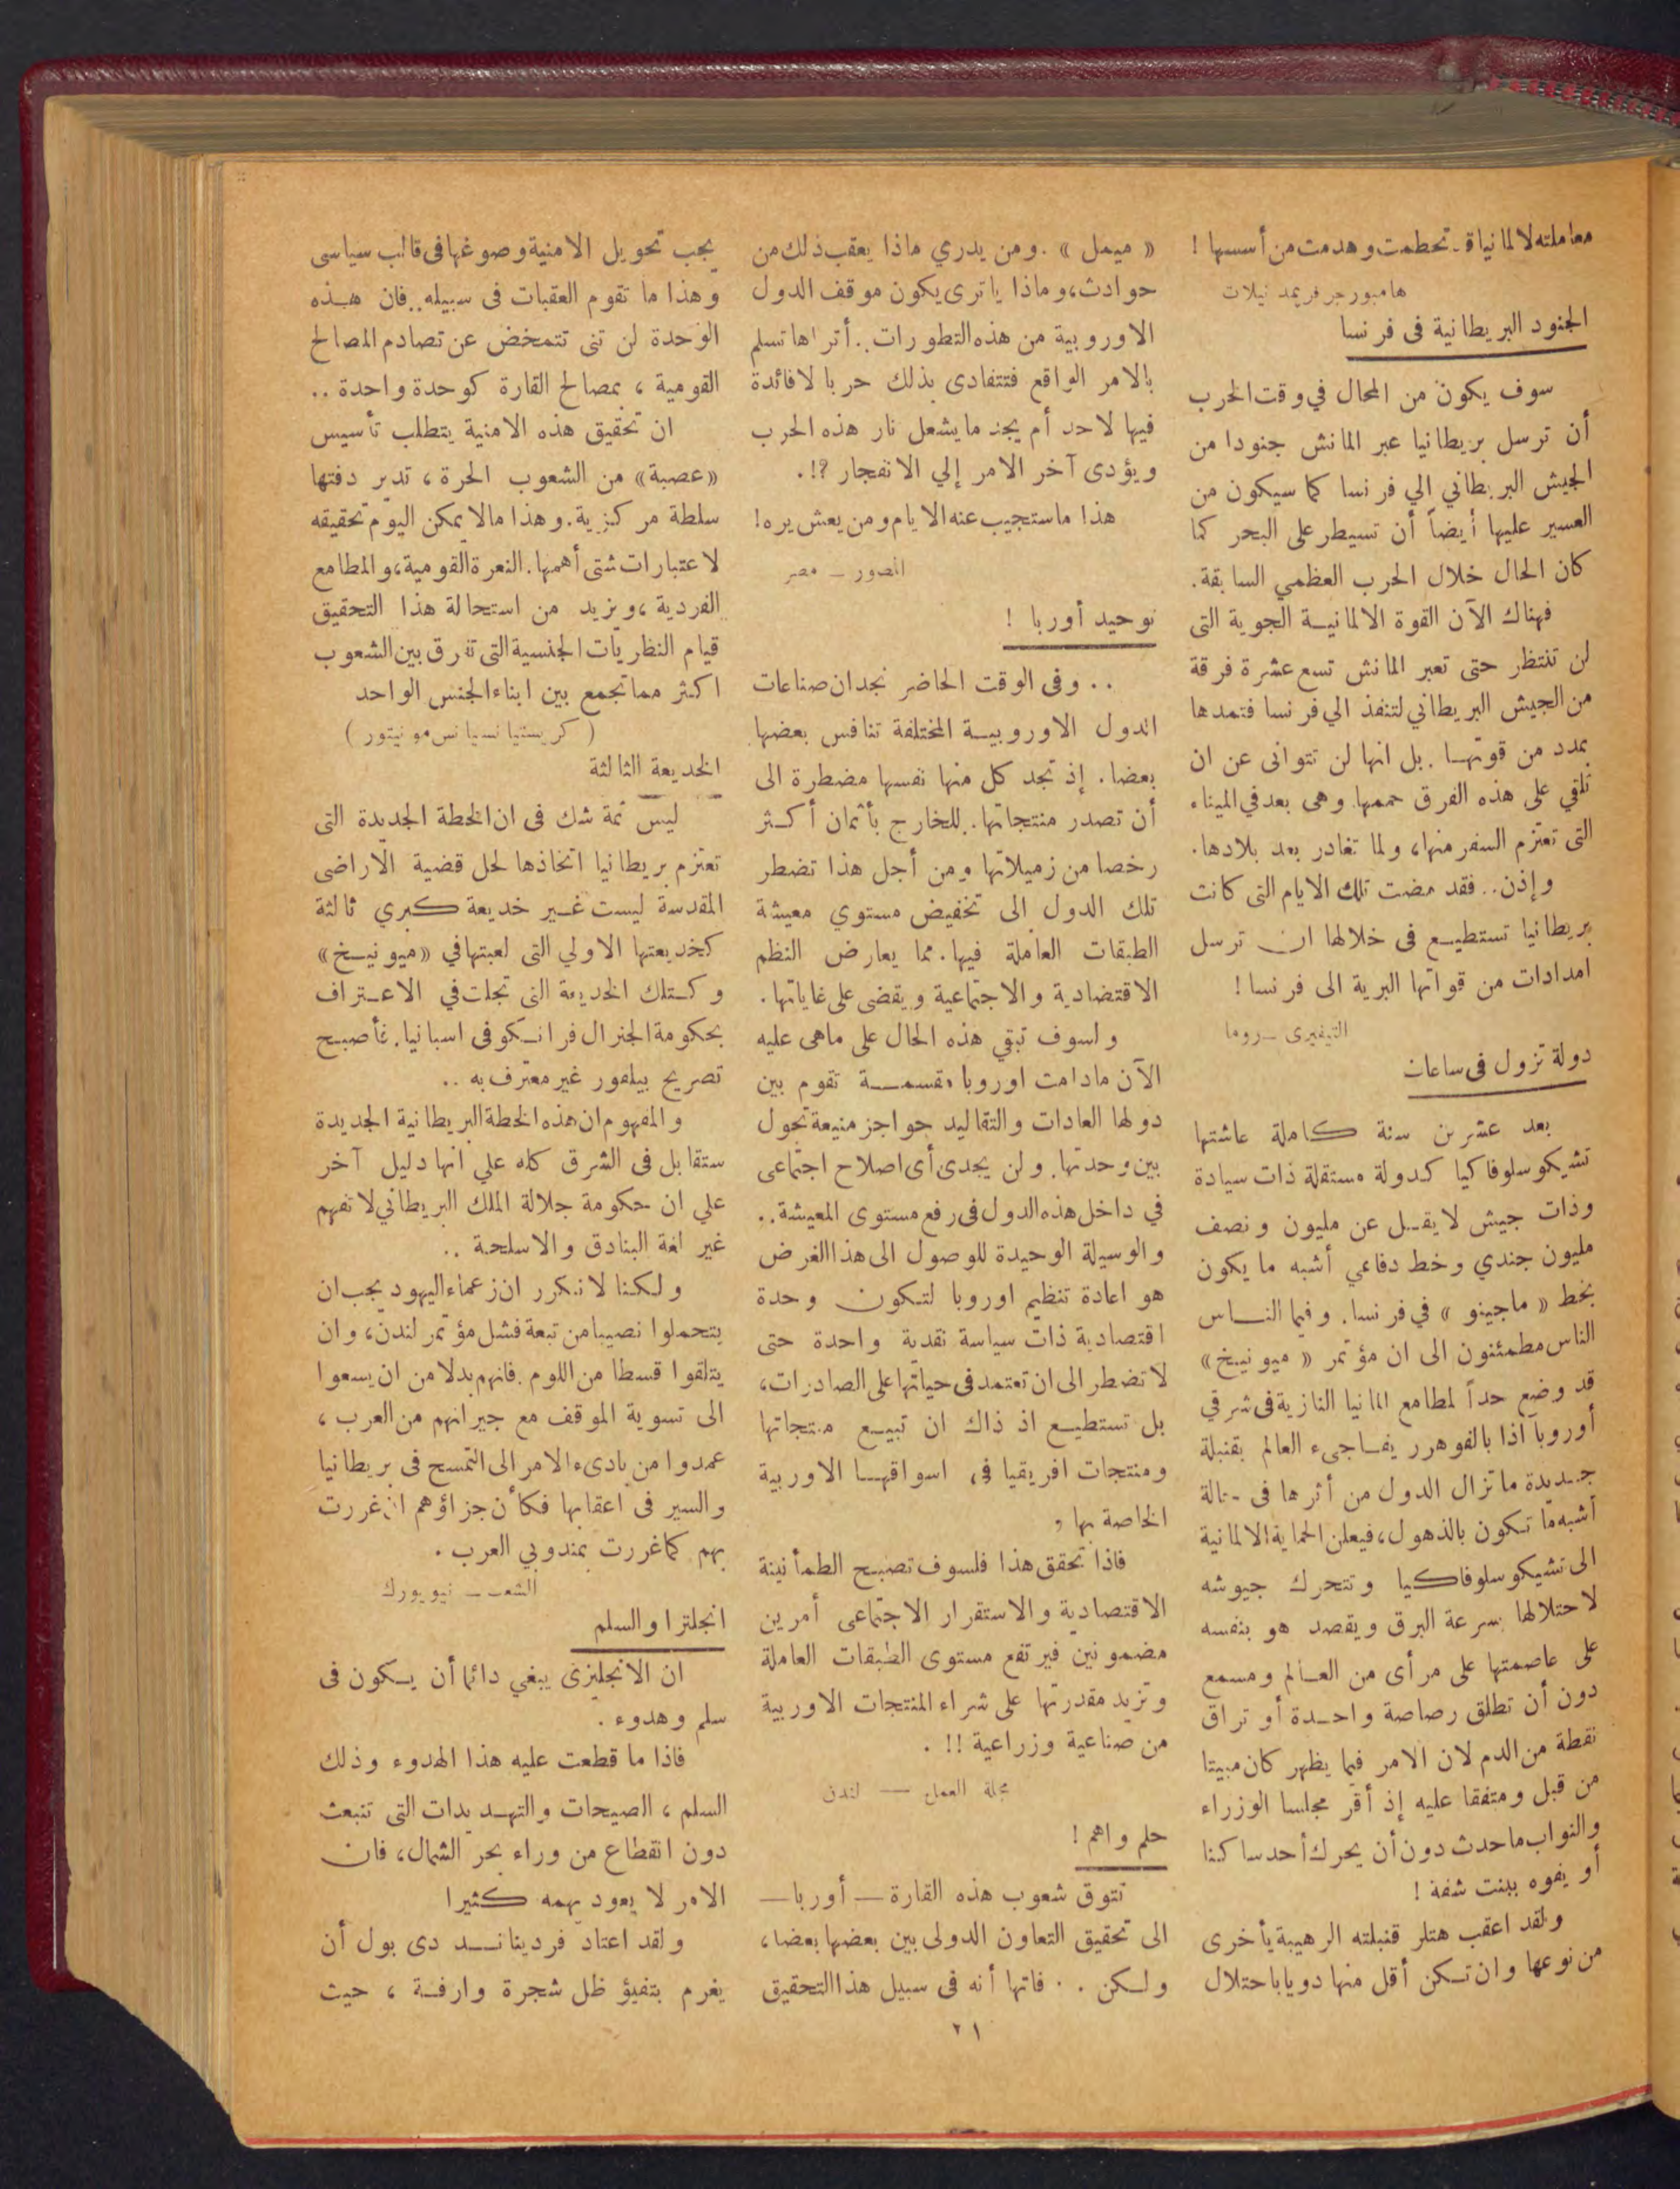 معاملته لالمانيا قد تحطمت وهدمت من أسسها !
هامبورجر فريمد نيلات
الجنود البريطانية فى فرنسا
سوف يكون من المحال في وقت الحرب
أن ترسل بريطانيا عبر المانش جنودا من
الجيش البريطاني الي فرنسا كما سيكون من
العسير عليها أيضاً أن تسيطر على البحر كما
كان الحال خلال الحرب العظمي السابقة.
فهناك الآن القوة الالمانيـة الجوية التى
لن تنتظر حتى تعبر المانش تسع عشرة فرقة
من الجيش البريطاني لتنفذ الي فرنسا فتمدها
بمدد من قوتهـا . بل انها لن تتوانى عن ان
تلقي على هذه الفرق حممها وهى بعد في الميناء
التى تعتزم السفر منها، ولما تغادر بعد بلادها.
وإذن.. فقد مضت تلك الايام التى كانت
بريطانيا تستطيـع فى خلالها ان ترسل
امدادات من قواتها البرية الى فرنسا !
التيفيرى ــ روما
دولة تزول فى ساعات
بعد عشرين سنة كاملة عاشتها
تشيكوسلوفاكيا كدولة مستقلة ذات سيادة
وذات جيش لا يقـل عن مليون ونصف
مليون جندي وخط دفاعي أشبه ما يكون
بخط « ماجينو » في فرنسا. وفيما النــاس
الناس مطمئنون الى ان مؤتمر « ميونيخ »
قد وضع حداً لمطامع المانيا النازية فى شرقي
أوروبا اذا بالفوهرر يفـاجىء العالم بقنبلة
جـديدة ما تزال الدول من أثرها فى حالة
أشبه ما تكون بالذهول، فيعلن الحماية الالمانية
الى تشيكوسلوفاكيا وتتحرك جيوشه
لاحتلالها بسرعة البرق ويقصد هو بنفسه
على عاصمتها على مرأى من العـالم ومسمع
دون أن تطلق رصاصة واحـدة أو تراق
نقطة من الدم لان الامر فيما يظهر كان مبيتا
من قبل ومتفقا عليه إذ أقر مجلسا الوزراء
والنواب ما حدث دون أن يحرك أحد ساكنا
أو يفوه ببنت شفة !
ولقد اعقب هتلر قنبلته الرهيبة بأخرى
من نوعها وان تـكن أقل منها دويا باحتلال
« ميمل » . ومن يدري ماذا يعقب ذلك من
حوادث، وماذا يا ترى يكون موقف الدول
الاوروبية من هذه التطورات.. أتراها تسلم
بالامر الواقع فتتفادى بذلك حربا لا فائدة
فيها لاحد أم يجد ما يشعل نار هذه الحرب
ويؤدى آخر الامر إلي الانفجار ؟!.
هذا ما ستجيب عنه الايام ومن يعش يره!
المصور ــ مصر
توحيد أوربا !
.. وفى الوقت الحاضر نجد ان صناعات
الدول الاوروبيـة المختلفة تنافس بعضها
بعضا. إذ تجد كل منها نفسها مضطرة الى
أن تصدر منتجاتها. للخارج بأثمان أكـثر
رخصا من زميلاتها ومن أجل هذا تضطر
تلك الدول الى تخفيض مستوي معيشة
الطبقات العاملة فيها. مما يعارض النظم
الاقتضادية والاجتماعية ويقضى على غاياتها.
ولسوف تبقي هذه الحال على ماهى عليه
الآن مادامت اوروبا مقسمــة تقوم بين
دولها العادات والتقاليد حواجز منيعة تحول
بين وحدتها. ولن يجدى أى اصلاح اجتماعى
في داخل هذه الدول فى رفع مستوى المعيشة..
والوسيلة الوحيدة للوصول الى هذا الغرض
هو اعادة تنظيم اوروبا لتـكون وحدة
اقتصادية ذات سياسة نقدية واحدة حتى
لا تضطر الى ان تعتمد فى حياتها على الصادرات،
بل تستطيـع اذ ذاك ان تبيـع منتجاتها
ومنتجات افريقيا فى اسواقهـا الاوربية
الخاصة بها .
فاذا تحقق هذا فلسوف تصبـح الطمأنينة
الاقتصادية والاستقرار الاجتماعى أمرين
مضمونين فيرتفع مستوى الطبقات العاملة
وتزيد مقدرتها على شراء المنتجات الاوربية
من صناعية وزراعية !! .
مجلة العمل — لندن
حلم واهم !
تتوق شعوب هذه القارة ــ أوربا ــ
الى تحقيق التعاون الدولى بين بعضها بعضا،
ولـكن . . فاتها أنه فى سبيل هذا التحقيق
يجب تحويل الامنية وصوغها فى قالب سياسى
وهذا ما تقوم العقبات فى سبيله.. فان هـذه
الوحدة لن تنى تتمخض عن تصادم المصالح
القومية ، بمصالح القارة كوحدة واحدة ..
ان تحقيق هذه الامنية يتطلب تأسيس
«عصبة» من الشعوب الحرة ، تدبر دفتها
سلطة مركزية. وهذا مالا يمكن اليوم تحقيقه
لاعتبارات شتى أهمها. النعرة القومية، والمطامع
الفردية ، ويزيد من استحالة هذا التحقيق
قيام النظريات الجنسية التى تفرق بين الشعوب
اكثر مما تجمع بين ابناء الجنس الواحد
( كريستيا نسيا نس مونيتور )
الخديعة الثالثة
ليس ثمة شك فى ان الخطة الجديدة التى
تعتزم بريطانيا اتخاذها لحل قضية الاراضى
المقدسة ليست غـير خديعة كبري ثالثة
كخديعتها الاولي التى لعبتها في «ميونيـخ»
وكـتلك الخديعة التى تجلت في الاعـتراف
بحكومة الجنرال فرانـكو فى اسبانيا. فأصبـح
تصريح بيلفور غير معترف به ..
والمفهوم ان هذه الخطة البريطانية الجديدة
ستقابل فى الشرق كله علي انها دليل آخر
علي ان حكومة جلالة الملك البريطاني لا تفهم
غير لغة البنادق والاسلحة ..
ولـكنا لا نـكرر ان زعماء اليهود يجب ان
يتحملوا نصيبا من تبعة فشل مؤتمر لندن، وان
يتلقوا قسطا من اللوم. فانهم بدلا من ان يسعوا
الى تسوية الموقف مع جيرانهم من العرب ،
عمدوا من بادىء الامر الى التمسح فى بريطانيا
والسير فى اعقابها فكأن جزاؤهم ان غررت
بهم كما غررت بمندوبي العرب .
الشعب ــ نيويورك
انجلترا والسلم
ان الانجليزى يبغي دائما أن يـكون فى
سلم وهدوء .
فاذا ما قطعت عليه هذا الهدوء وذلك
السلم ، الصيحات والتهـديدات التى تنبعث
دون انقطاع من وراء بحر الشمال، فان
الامر لا يعود يهمه كثيرا
ولقد اعتاد فردينانـد دى بول أن
يغرم بتفيؤ ظل شجرة وارفـة ، حيث
٢١